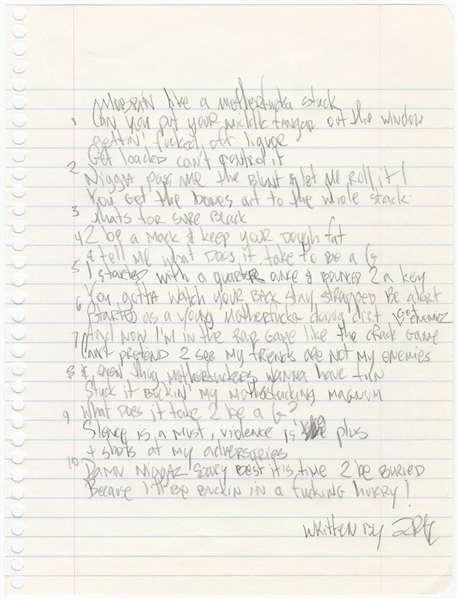 Mobbin like a motherfucka stuck
1 Can you put your middle finger out the window
gettin' fucked off liquor
Get loaded can't control it
2 Nigga pass me the blunt & let me roll it!
You get the bones act to the whole stack
3 thats for sure black
4 2 be a mack & keep your dough fat
& tell me what does it take to be a G
5 I started with a quarter ounce & bounced 2 a key
You gotta watch your back stay strapped be alert
6 Started as a young motherfucka doing dirt Got enemiez
7 And now I'm in the rap game like the crack game
Can't pretend 2 see my friends are not my enemies
8 & when thug motherfuckers wanna have fun
Stuck it buckin' my motherfucking magnum
9 What does it take 2 be a G?
Silence is a must, violence is plus
+ shots at my adversaries
10 Damn niggaz scary best it is time 2 be buried
Because I'll be buckin in a fucking hurry!
Written By